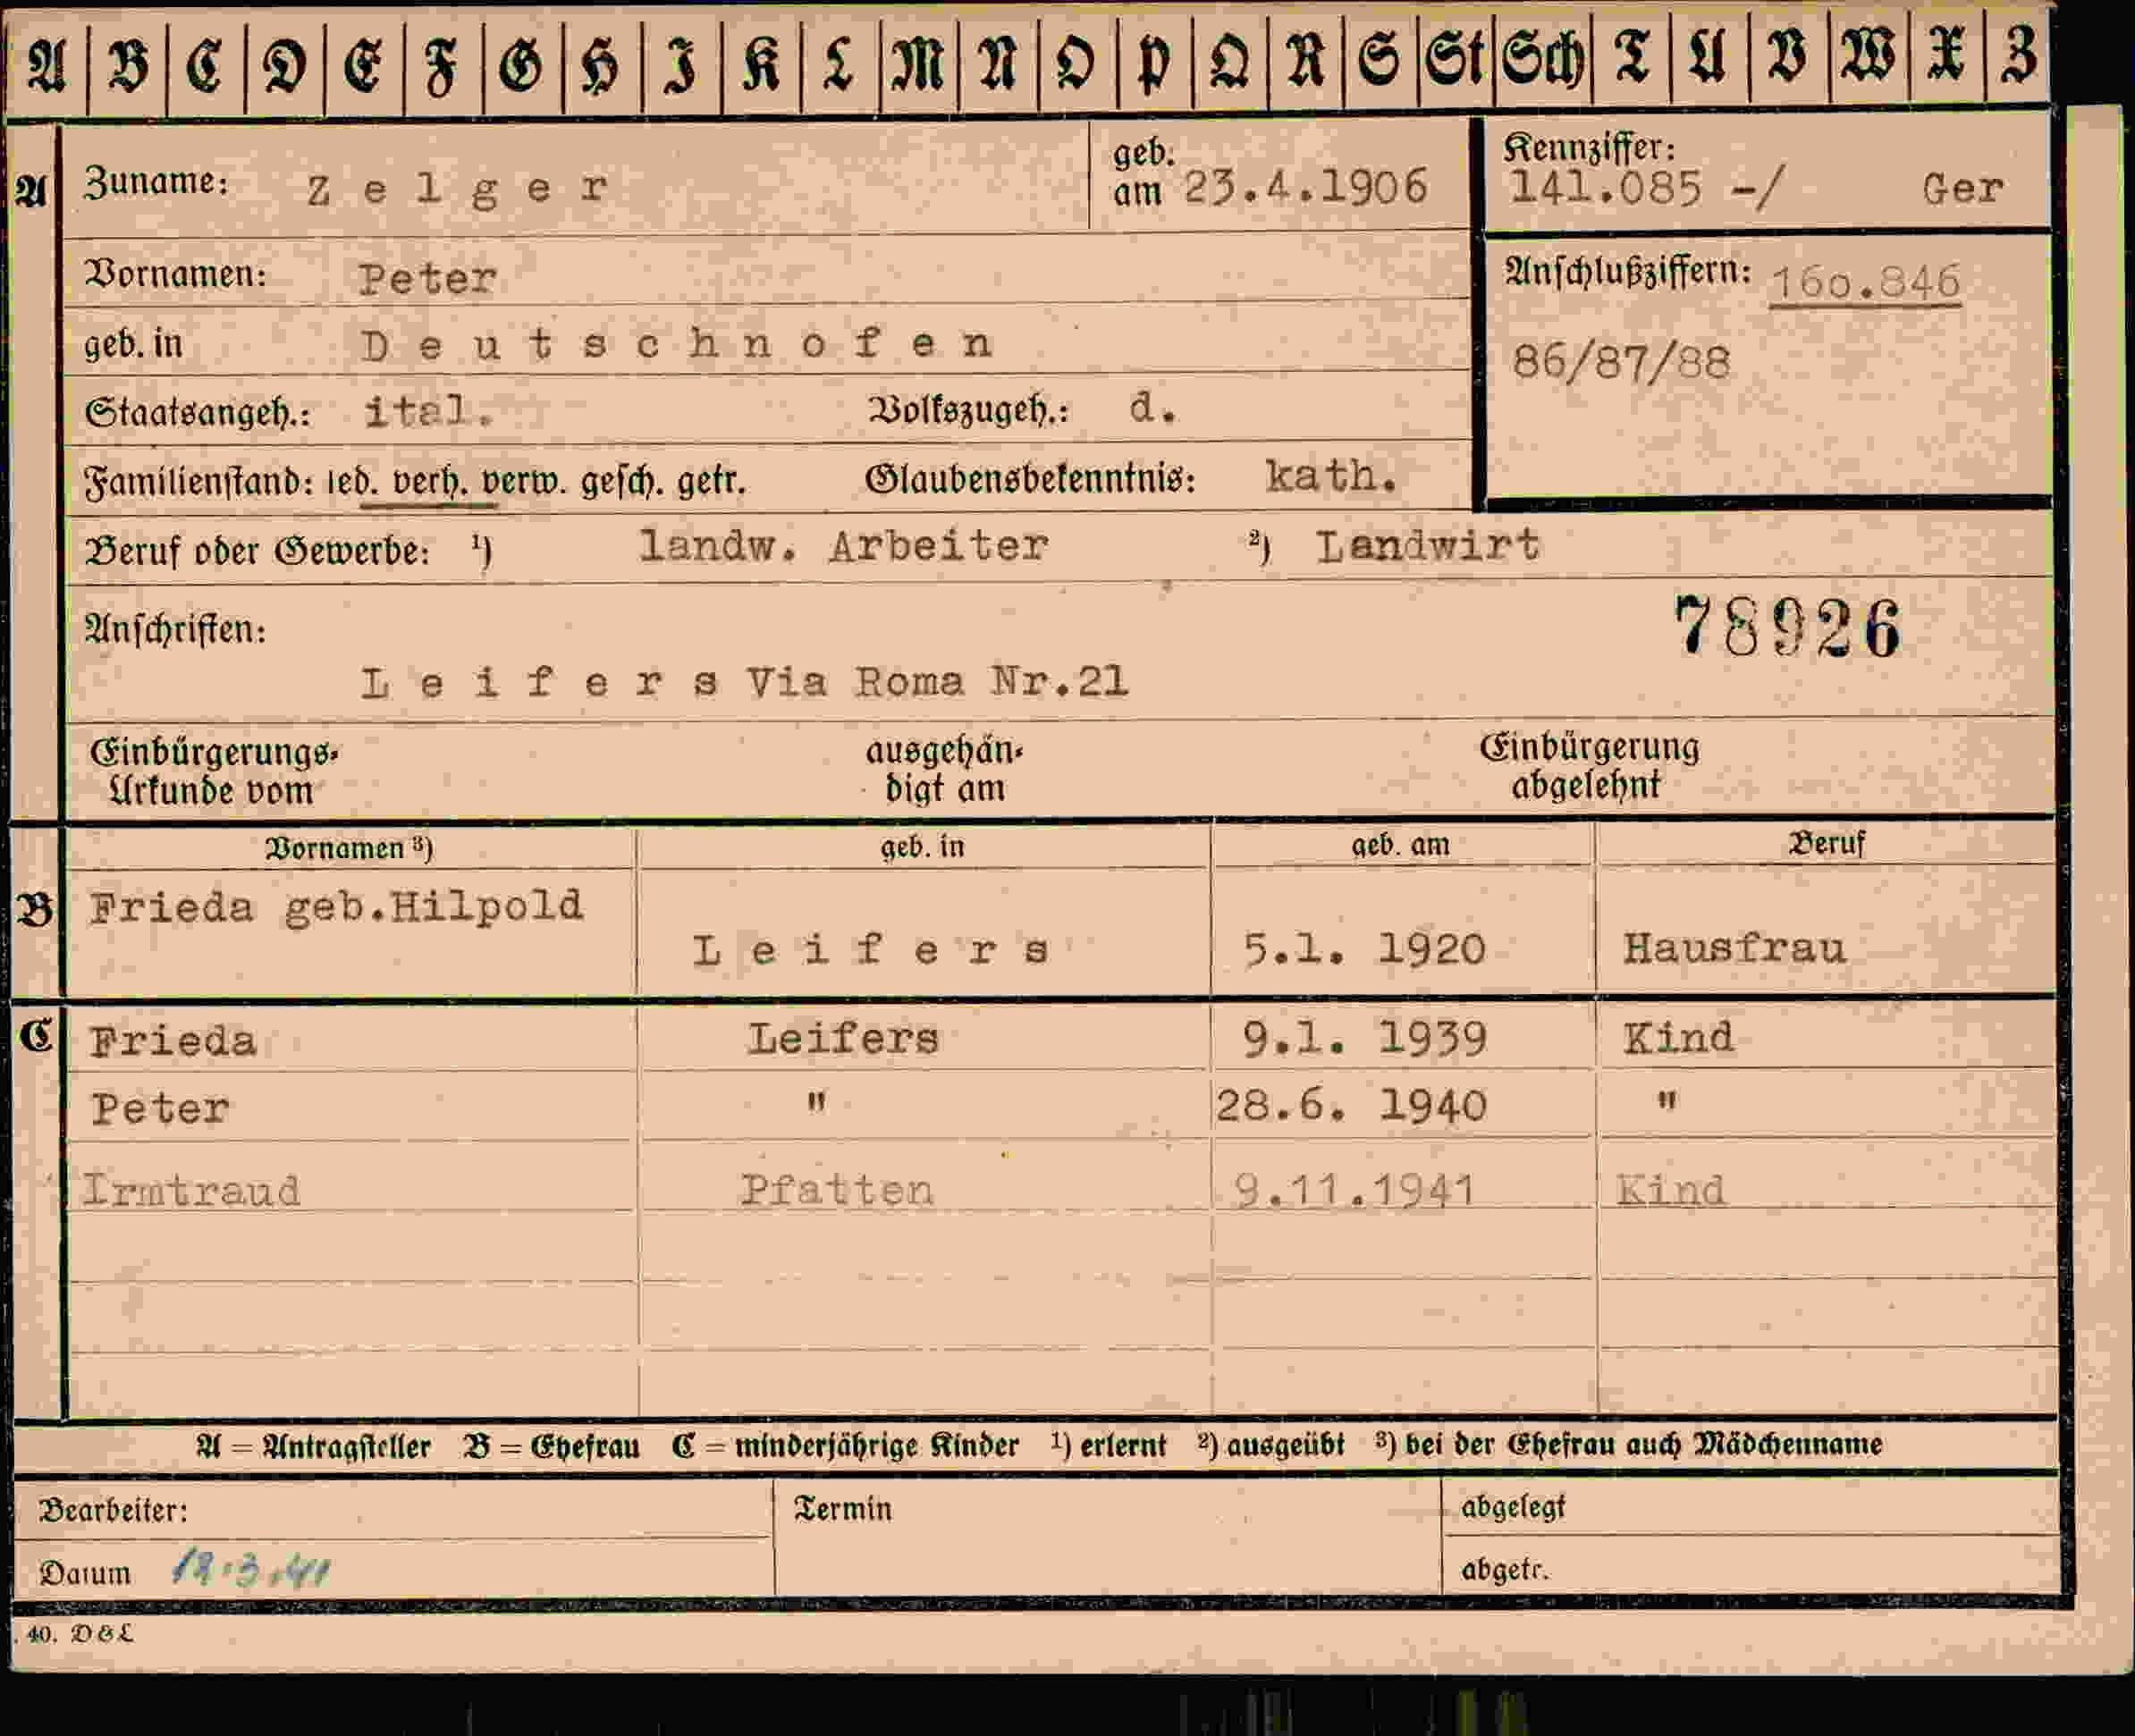 A B C D E F G H I K L M N O P Q R S St Sch T U V W X Z
A Zuname: Zelger geb. am 23.4.1906 Kennziffer: 141.085 -/ Ger
Vornamen: Peter Anschlußziffern: 160.846
geb. in Deutschnofen 86/87/88
Staatsangeh.: ital. Volkszugeh.: d.
Familienstand: led. verh. verw. gesch. getr. Glaubensbekenntnis: kath.
Beruf oder Gewerbe: ¹) landw. Arbeiter ²) Landwirt
Anschriften: 78926
Leifers Via Roma Nr.21
Einbürgerungs- ausgehän- Einbürgerung
Urkunde vom digt am abgelehnt
Vornamen ³) geb. in geb. am Beruf
B Frieda geb.Hilpold
Leifers 5.1. 1920 Hausfrau
C Frieda Leifers 9.1. 1939 Kind
Peter " 28.6. 1940 "
Irmtraud Pfatten 9.11.1941 Kind
A = Antragsteller B = Ehefrau C = minderjährige Kinder ¹) erlernt ²) ausgeübt ³) bei der Ehefrau auch Mädchenname
Bearbeiter: Termin abgelegt
Datum abgetr.
40.